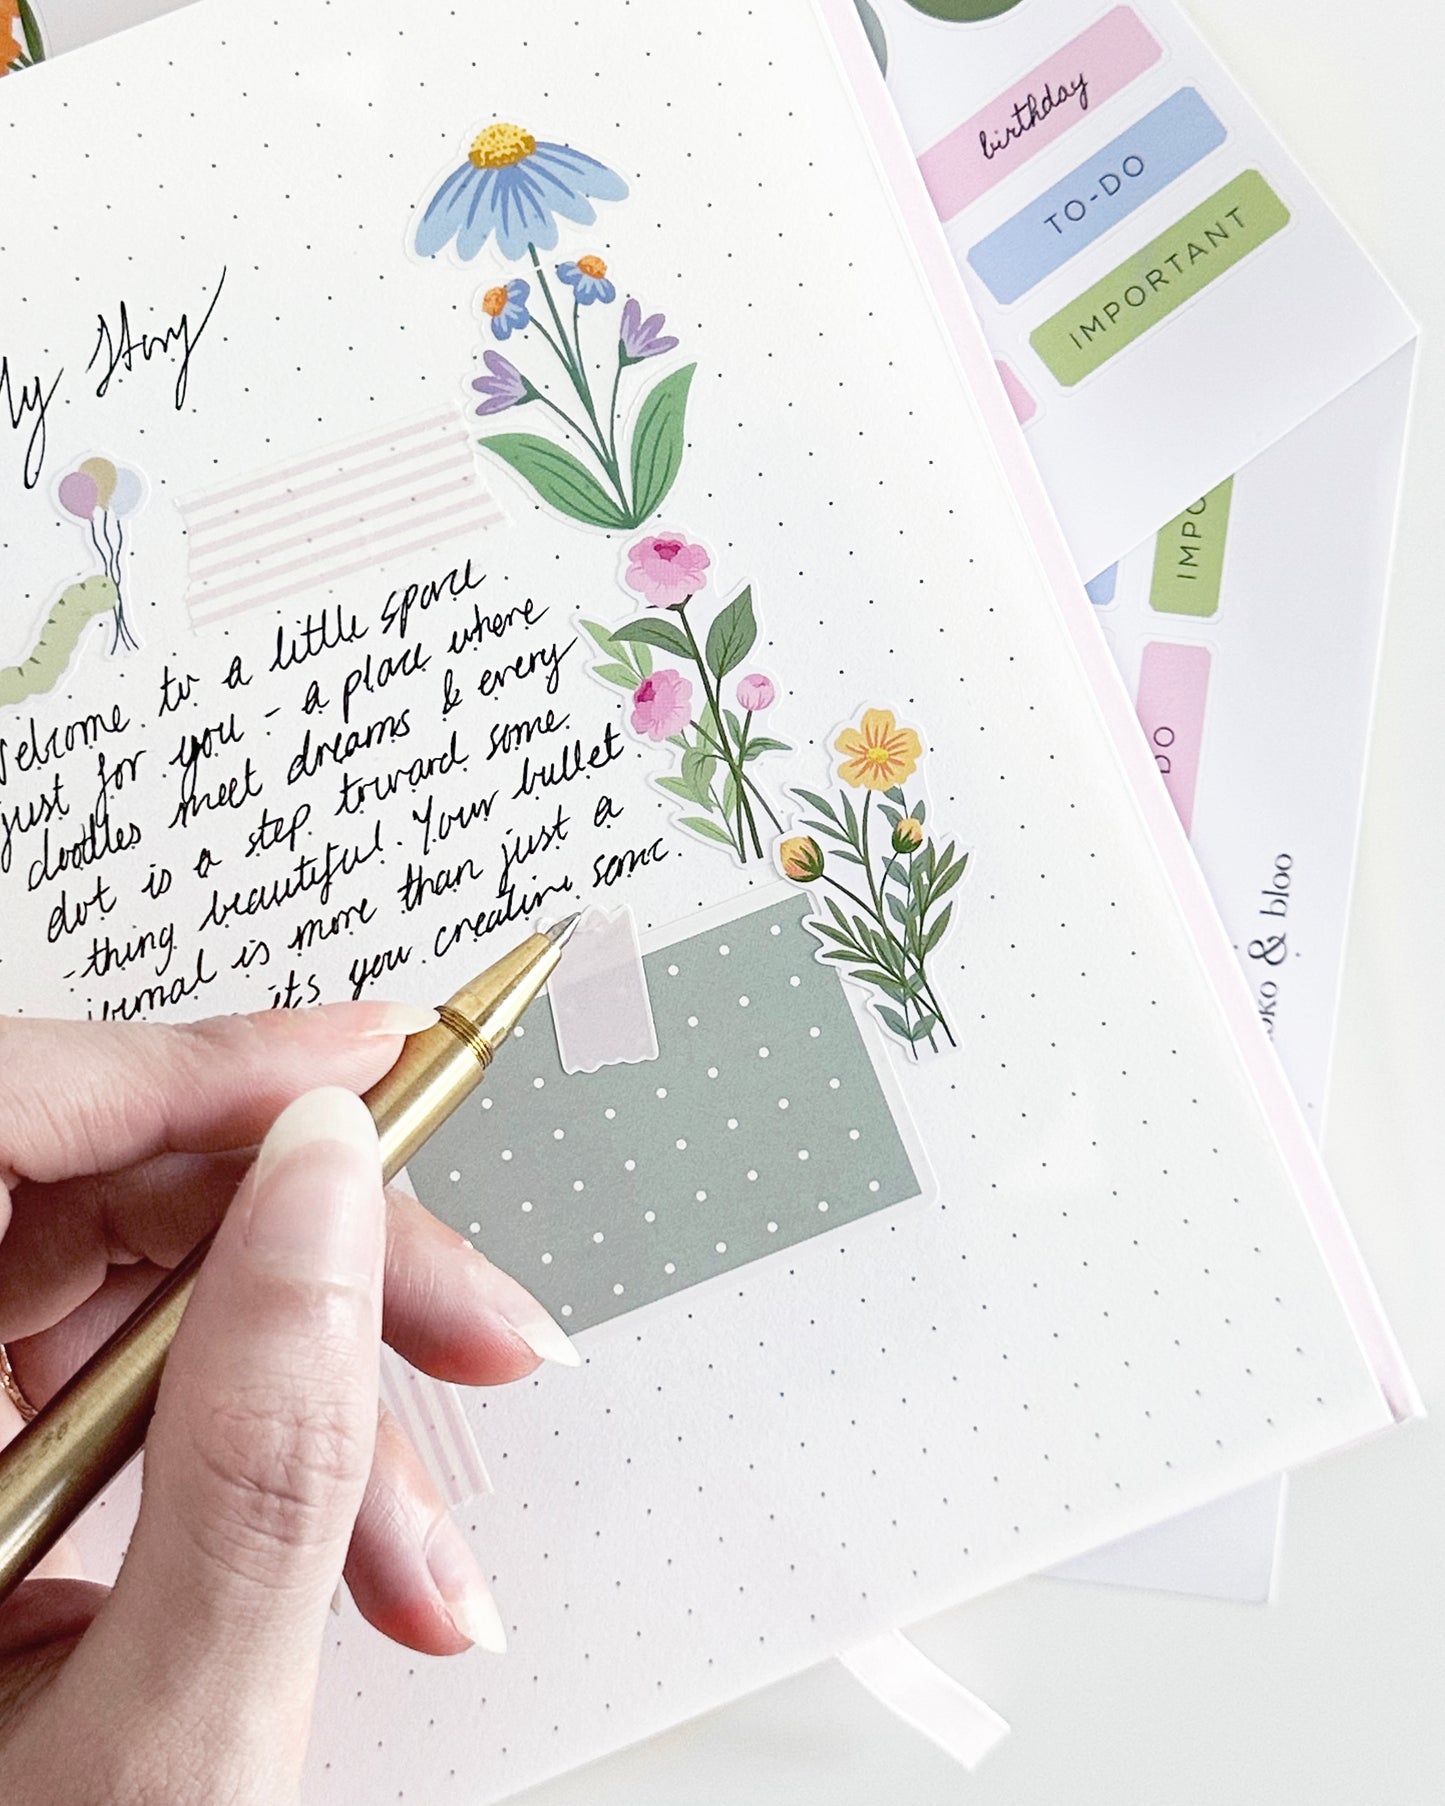 My Story
Welcome to a little space
just for you - a place where
doodles meet dreams & every
dot is a step toward some
-thing beautiful. Your bullet
journal is more than just a
its you creating some.
birthday
TO-DO
IMPORTANT
IMPO
DO
oko & bloo